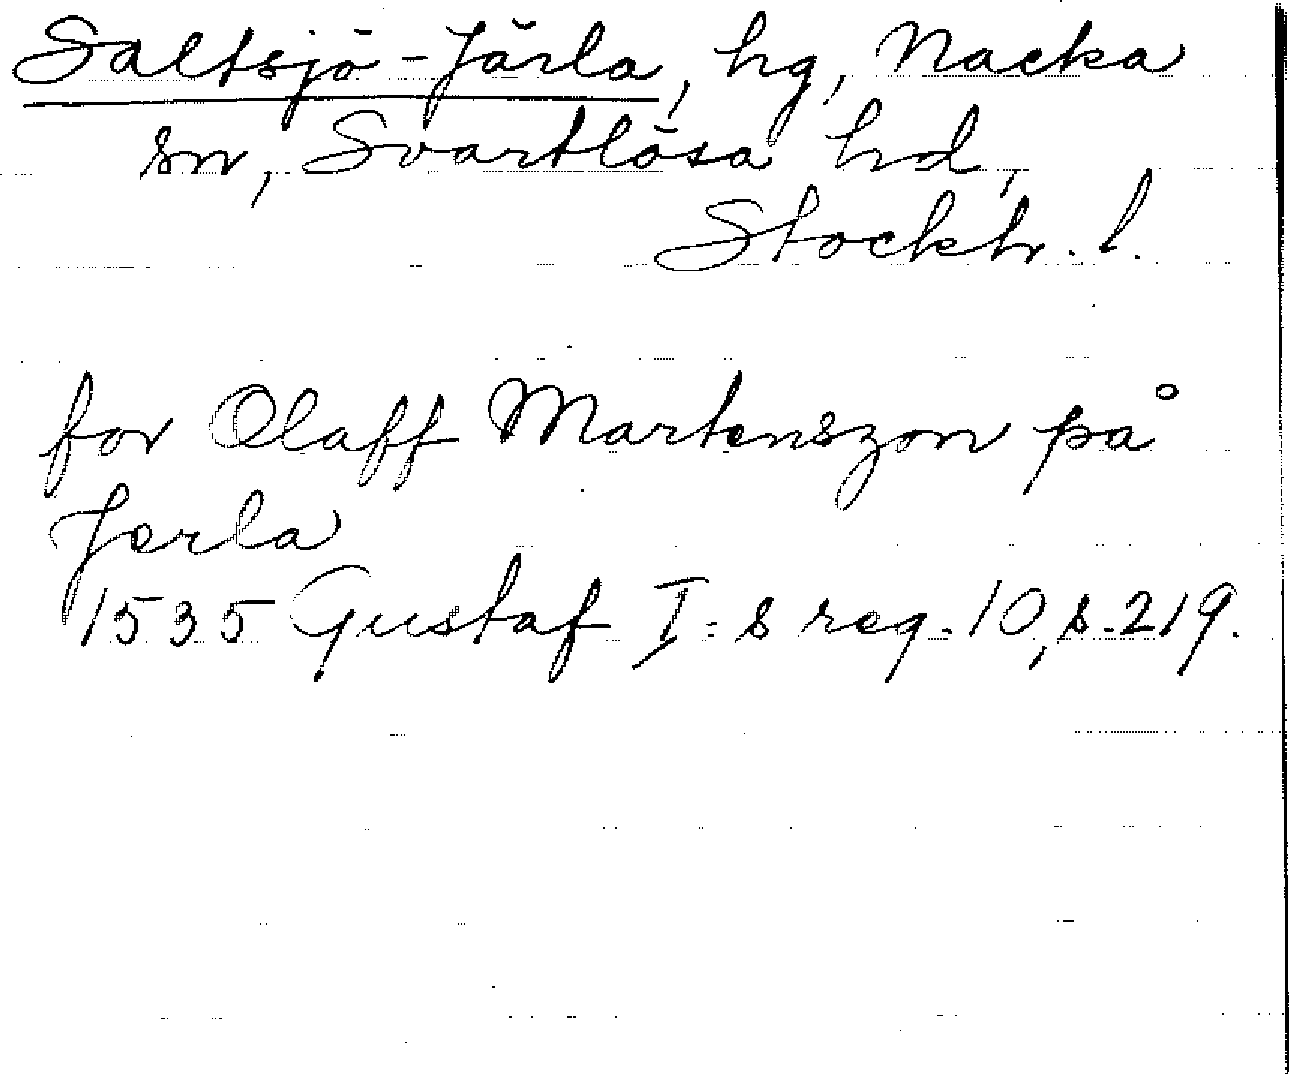 Saltsjö-Järla, hg, Nacka
sn, Svartlösa hd,
Stockh. l.
for Olaff Martenszon på
Jerla
1535 Gustaf I:s reg. 10, s. 219.